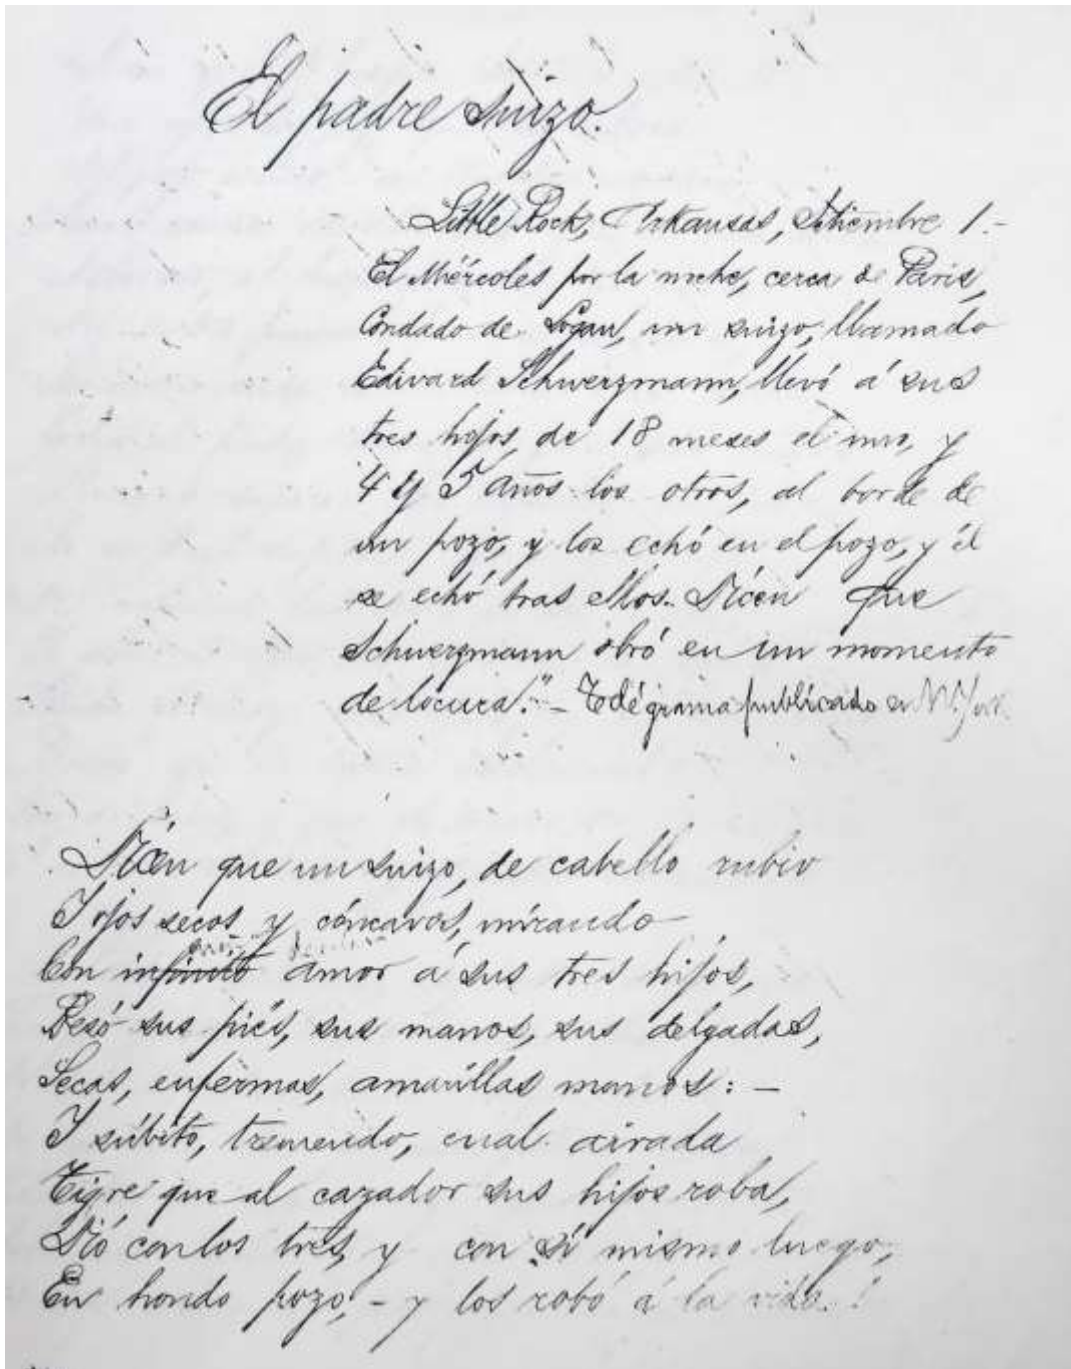 El padre suizo.
Little Rock, Arkansas, Setiembre 1.–
El Miércoles por la noche, cerca de Paris,
Condado de Logan, un suizo, llamado
Edward Schwerzmann, llevó á sus
tres hijos, de 18 meses el uno, y
4 y 5 años los otros, al borde de
un pozo, y los echó en el pozo, y él
se echó tras ellos. Dicen que
Schwerzmann obró en un momento
de locura." – Telégrama publicado en N. York
Dicen que un suizo, de cabello rubio
Y ojos secos y cóncavos, mirando
Con infinito amor á sus tres hijos,
Besó sus piés, sus manos, sus delgadas,
Secas, enfermas, amarillas manos: –
Y súbito, tremendo, cual airada
Tigre que al cazador sus hijos roba,
Dió con los tres, y con sí mismo luego,
En hondo pozo, – y los robó á la vida.!